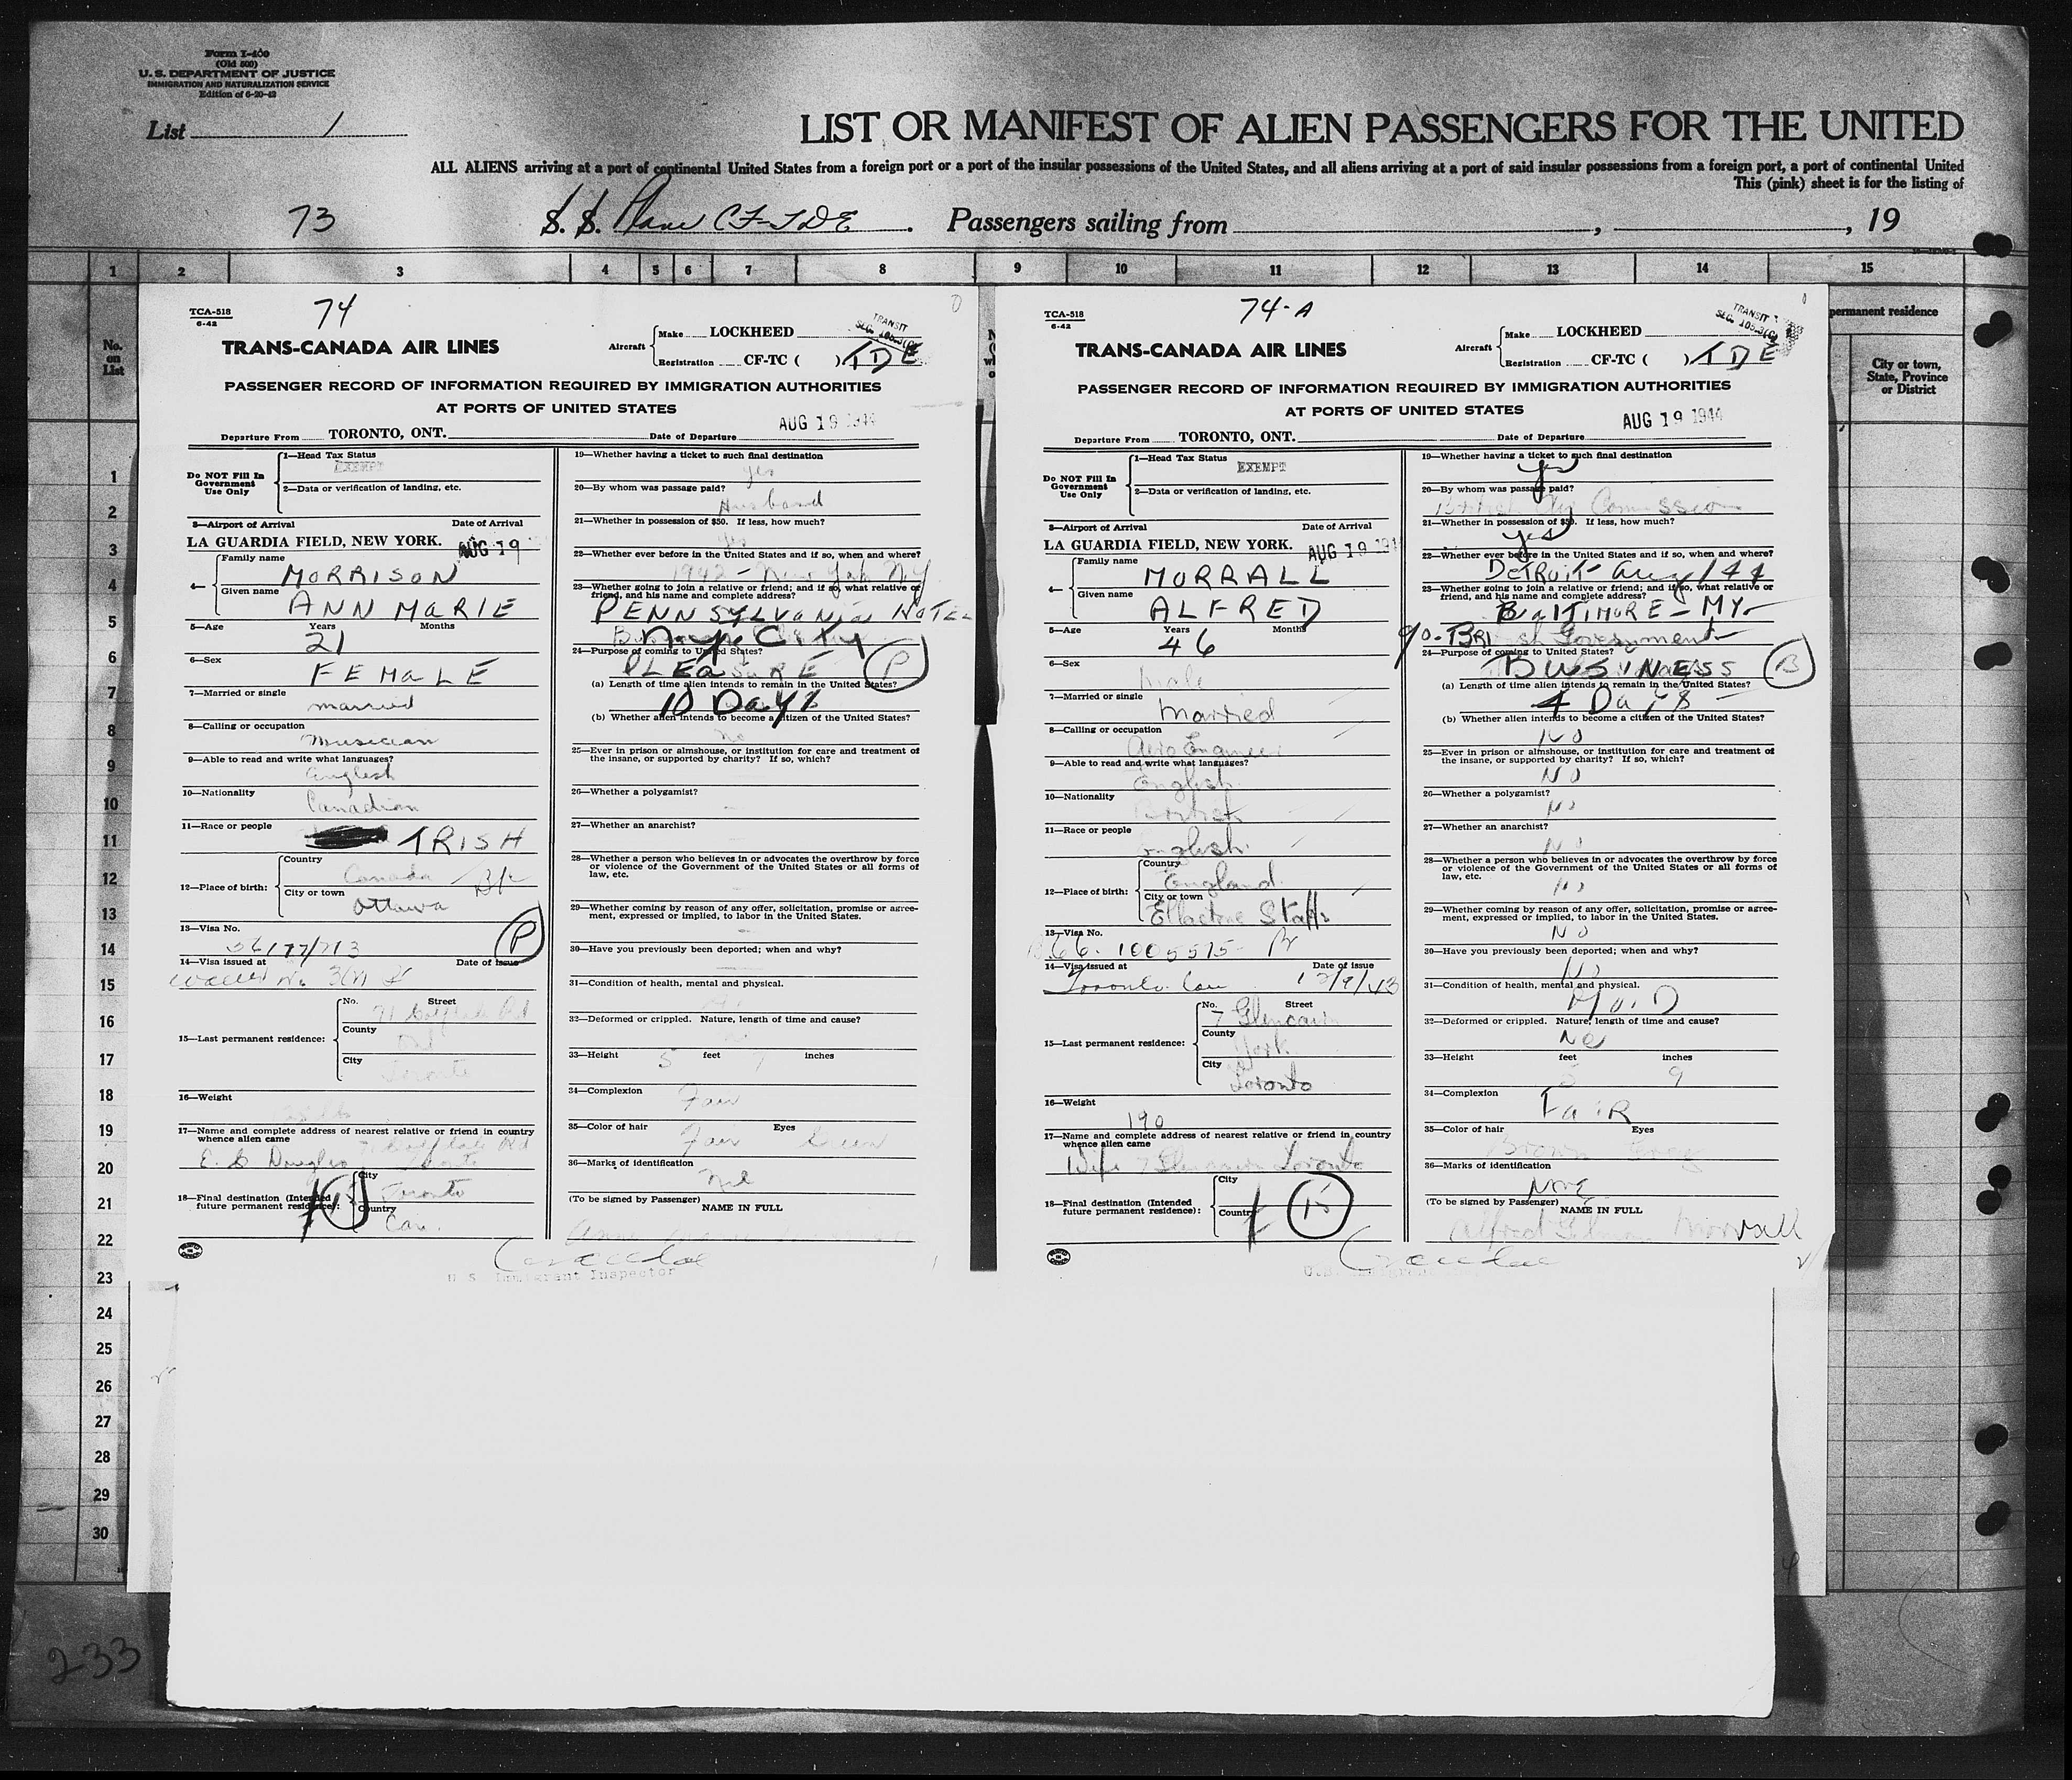 Form I-460
(Old 500)
U. S. DEPARTMENT OF JUSTICE
IMMIGRATION AND NATURALIZATION SERVICE
Edition of 6-20-42
List 1
LIST OR MANIFEST OF ALIEN PASSENGERS FOR THE UNITED
ALL ALIENS arriving at a port of continental United States from a foreign port or a port of the insular possessions of the United States, and all aliens arriving at a port of said insular possessions from a foreign port, a port of continental United
This (pink) sheet is for the listing of
73 S. S. Plane CF-TDE. Passengers sailing from , , 19
1 2 3 4 5 6 7 8 9 10 11 12 13 14 15
No. on List
permanent residence
City or town, State, Province or District
1
2
3
4
5
6
7
8
9
10
11
12
13
14
15
16
17
18
19
20
21
22
23
24
25
26
27
28
29
30
233
TCA-518
6-42
74
TRANSIT
TRANS-CANADA AIR LINES
Aircraft
Make LOCKHEED
Registration CF-TC ( ) TDE
PASSENGER RECORD OF INFORMATION REQUIRED BY IMMIGRATION AUTHORITIES
AT PORTS OF UNITED STATES
AUG 19 1944
Departure From TORONTO, ONT. Date of Departure
Do NOT Fill In Government Use Only
1—Head Tax Status
EXEMPT
2—Data or verification of landing, etc.
3—Airport of Arrival Date of Arrival
LA GUARDIA FIELD, NEW YORK. AUG 19
4—
Family name
MORRISON
Given name
ANN MARIE
5—Age Years Months
21
6—Sex
FEMALE
7—Married or single
married
8—Calling or occupation
Musician
9—Able to read and write what languages?
English
10—Nationality
Canadian
11—Race or people
IRISH
12—Place of birth:
Country
Canada
City or town
Ottawa
13—Visa No.
P
14—Visa issued at Date of issue
15—Last permanent residence:
No. Street
71
County
City
Toronto
16—Weight
17—Name and complete address of nearest relative or friend in country
whence alien came
Douglas
18—Final destination (Intended
future permanent residence):
City
Toronto
Country
Can.
19—Whether having a ticket to such final destination
Yes
20—By whom was passage paid?
Husband
21—Whether in possession of $50. If less, how much?
Yes
22—Whether ever before in the United States and if so, when and where?
1942 - New York N.Y.
23—Whether going to join a relative or friend; and if so, what relative or
friend, and his name and complete address?
PENNSYLVANIA HOTEL
N.Y. City
24—Purpose of coming to United States?
PLEASURE P
(a) Length of time alien intends to remain in the United States?
10 Days
(b) Whether alien intends to become a citizen of the United States?
No
25—Ever in prison or almshouse, or institution for care and treatment of
the insane, or supported by charity? If so, which?
26—Whether a polygamist?
27—Whether an anarchist?
28—Whether a person who believes in or advocates the overthrow by force
or violence of the Government of the United States or all forms of
law, etc.
29—Whether coming by reason of any offer, solicitation, promise or agree-
ment, expressed or implied, to labor in the United States.
30—Have you previously been deported; when and why?
31—Condition of health, mental and physical.
32—Deformed or crippled. Nature, length of time and cause?
33—Height 5 feet 7 inches
34—Complexion
Fair
35—Color of hair Eyes
Fair Green
36—Marks of identification
Nil
(To be signed by Passenger) NAME IN FULL
U. S. Immigrant Inspector
TCA-518
6-42
74-A
TRANSIT
TRANS-CANADA AIR LINES
Aircraft
Make LOCKHEED
Registration CF-TC ( ) TDE
PASSENGER RECORD OF INFORMATION REQUIRED BY IMMIGRATION AUTHORITIES
AT PORTS OF UNITED STATES
AUG 19 1944
Departure From TORONTO, ONT. Date of Departure
Do NOT Fill In Government Use Only
1—Head Tax Status
EXEMPT
2—Data or verification of landing, etc.
3—Airport of Arrival Date of Arrival
LA GUARDIA FIELD, NEW YORK. AUG 19
4—
Family name
MORRALL
Given name
ALFRED
5—Age Years Months
46
6—Sex
Male
7—Married or single
Married
8—Calling or occupation
Aero Engineer
9—Able to read and write what languages?
English
10—Nationality
British
11—Race or people
English
12—Place of birth:
Country
England
City or town
Staffs
13—Visa No.
1005515
14—Visa issued at Date of issue
Toronto Can 13/9/43
15—Last permanent residence:
No. Street
7 Glencairn
County
York
City
Toronto
16—Weight
190
17—Name and complete address of nearest relative or friend in country
whence alien came
Wife 7 Glencairn Toronto
18—Final destination (Intended
future permanent residence):
City
Country
19—Whether having a ticket to such final destination
yes
20—By whom was passage paid?
British Air Commission
21—Whether in possession of $50. If less, how much?
yes
22—Whether ever before in the United States and if so, when and where?
DETROIT - Aug/44
23—Whether going to join a relative or friend; and if so, what relative or
friend, and his name and complete address?
BALTIMORE - MY
British Government
24—Purpose of coming to United States?
BUSINESS B
(a) Length of time alien intends to remain in the United States?
4 Days
(b) Whether alien intends to become a citizen of the United States?
NO
25—Ever in prison or almshouse, or institution for care and treatment of
the insane, or supported by charity? If so, which?
NO
26—Whether a polygamist?
NO
27—Whether an anarchist?
NO
28—Whether a person who believes in or advocates the overthrow by force
or violence of the Government of the United States or all forms of
law, etc.
NO
29—Whether coming by reason of any offer, solicitation, promise or agree-
ment, expressed or implied, to labor in the United States.
NO
30—Have you previously been deported; when and why?
NO
31—Condition of health, mental and physical.
32—Deformed or crippled. Nature, length of time and cause?
No
33—Height 5 feet 9 inches
34—Complexion
FAIR
35—Color of hair Eyes
Brown Grey
36—Marks of identification
None
(To be signed by Passenger) NAME IN FULL
Alfred Morrall